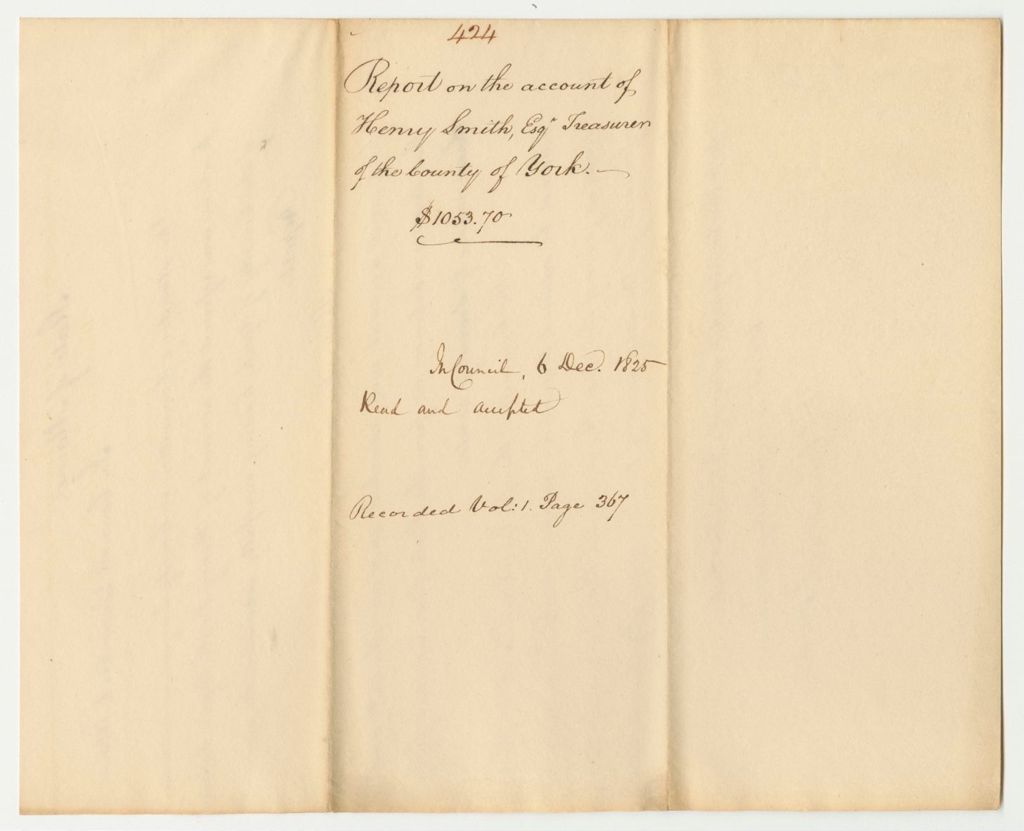 424
Report on the account of
Henry Smith, Esqr Treasurer
of the County of York.
$1053.70
In Council, 6 Dec. 1825
Read and accepted
Recorded Vol: 1. Page 367